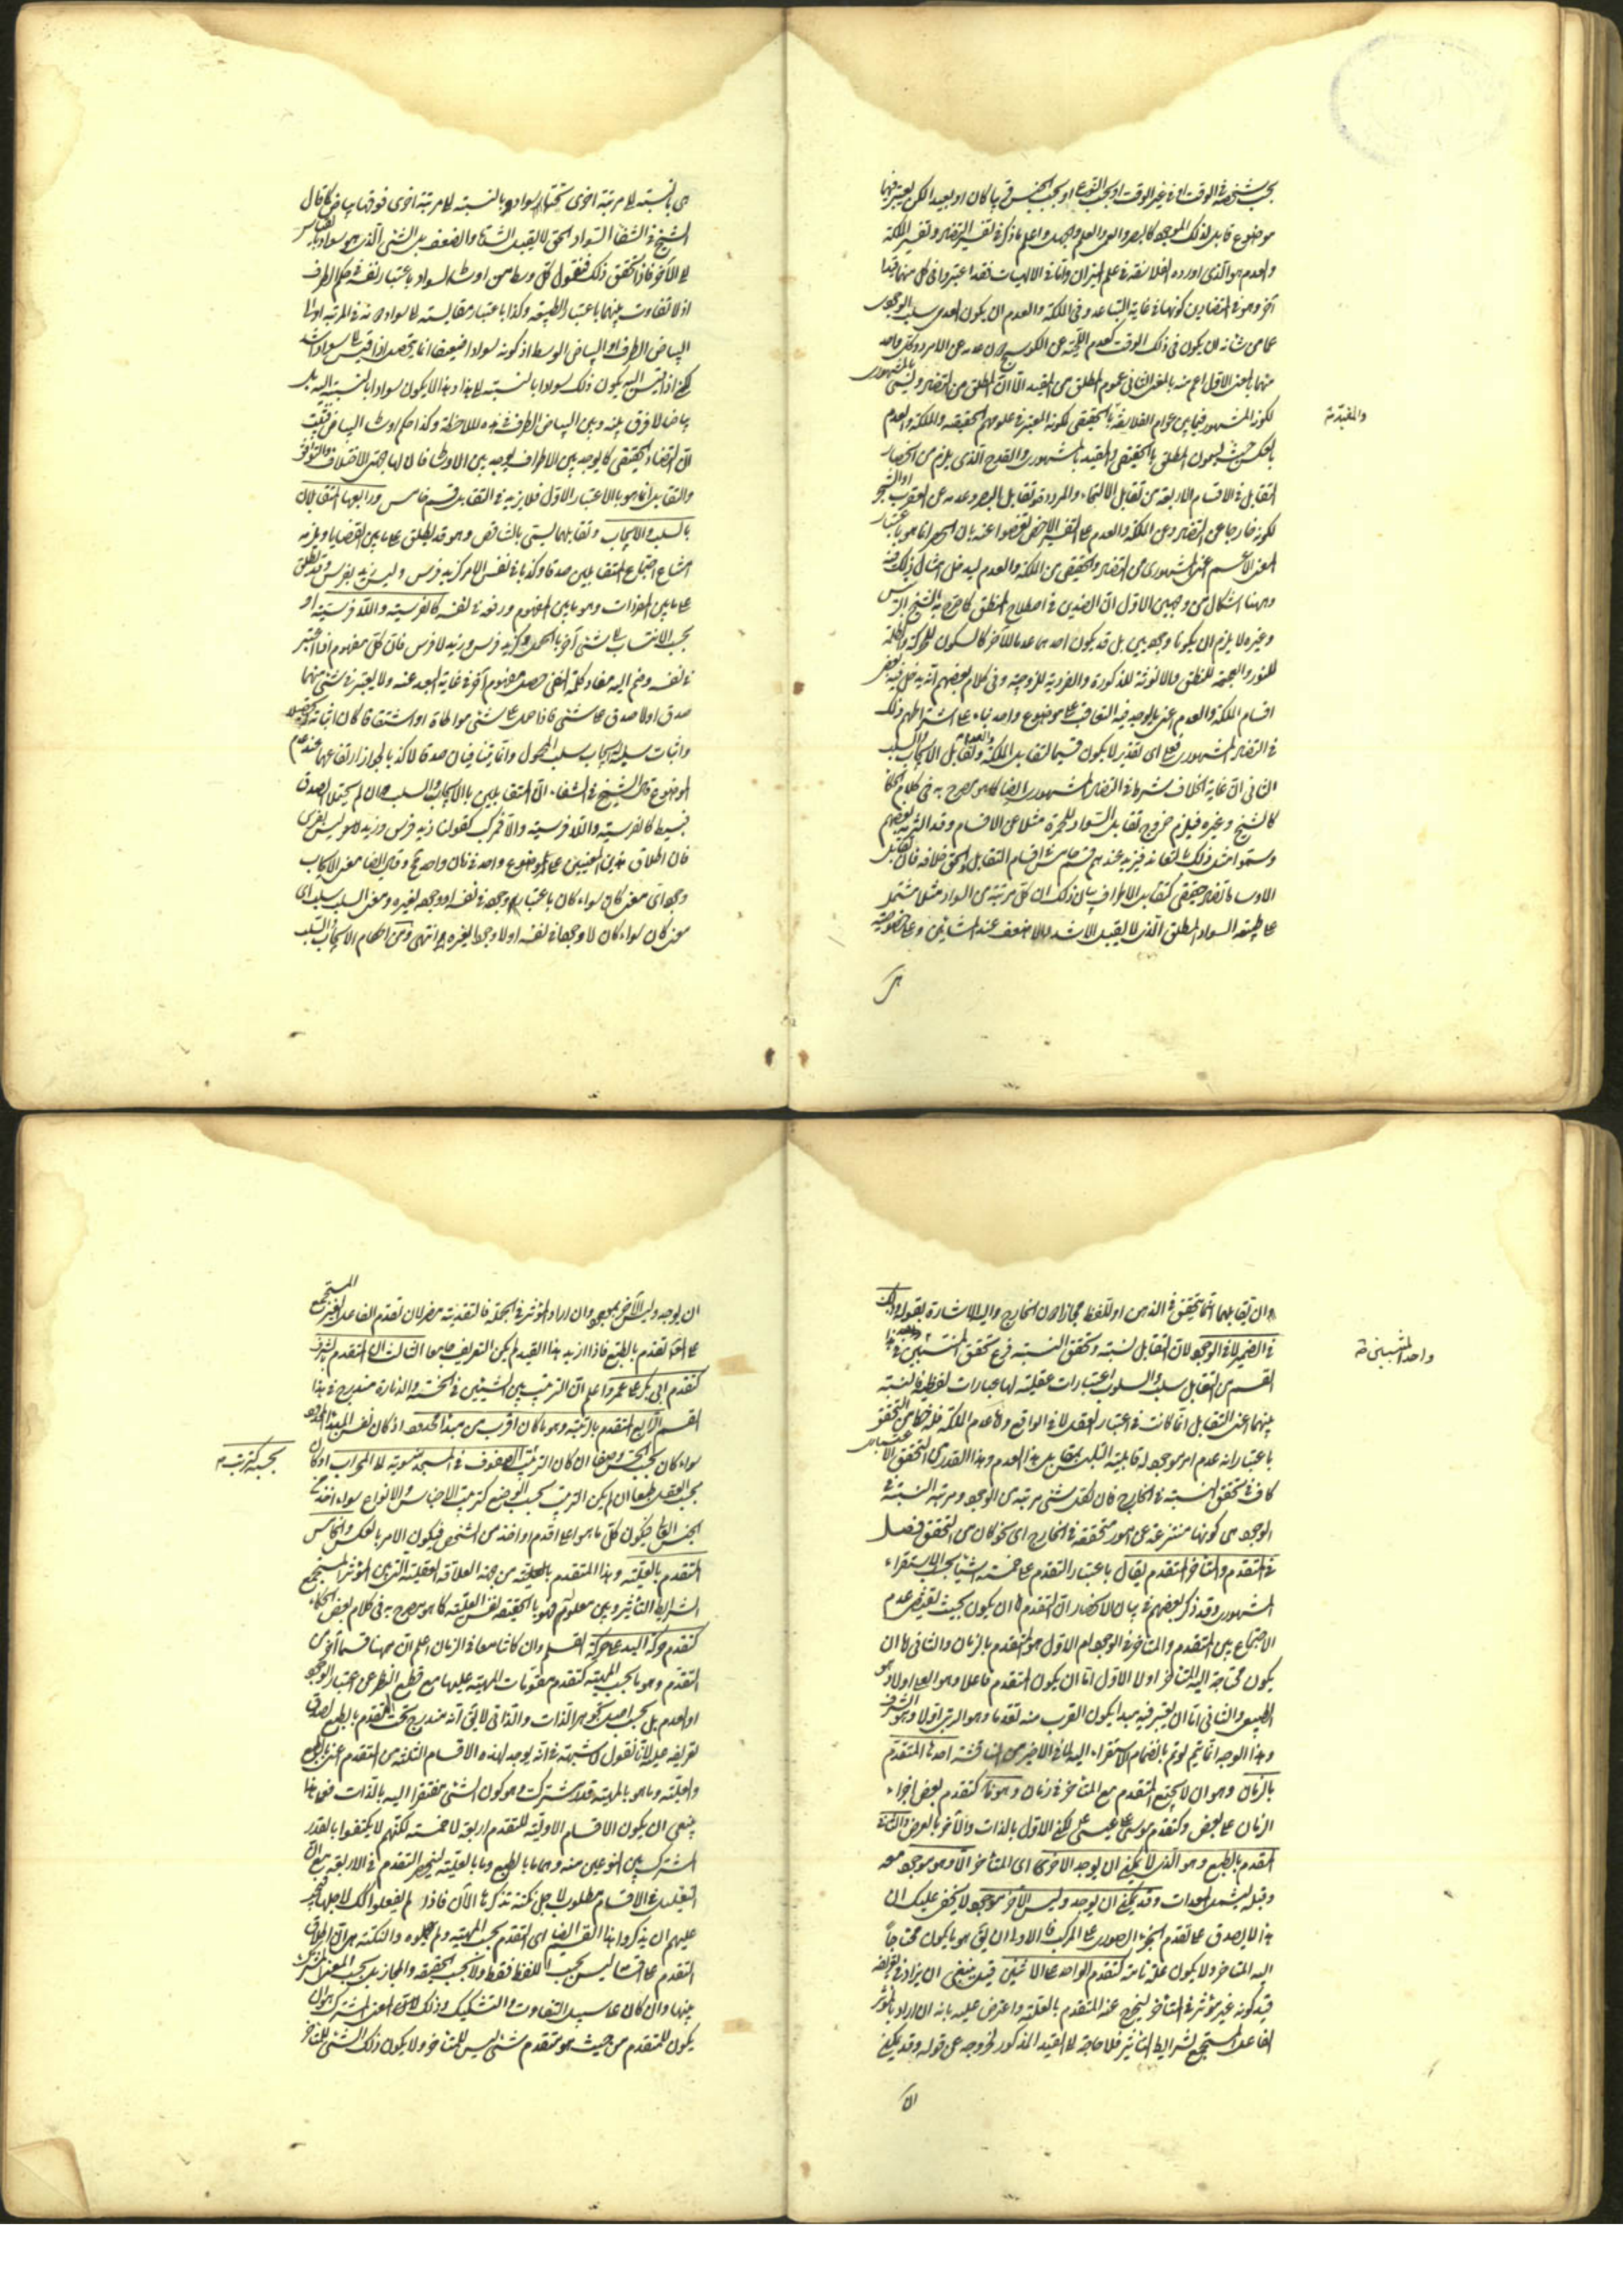 بحسب شخصه في الوقت او في غير الوقت او بحسب النوع او بحسب الجنس قريبا كان او بعيدا لكن يعتبر فيهما
موضوع قابل لذلك الموجود كالبصر والعمى والعلم والجهل واعلم ما ذكر في تفسير التضاد وتفسير الملكة
والعدم هو الذي اورده الفلاسفة في علم الميزان واما في الالهيات فقد اعتبروا في كل منهما قيدا
آخر وهو في المتضادين كونهما في غاية التباعد وفي الملكة والعدم ان يكون العدمي سلب الوجودي
عما من شانه ان يكون في ذلك الوقت كعدم اللحية عن الكوسج دون عدمه عن الامرد وكل واحد
منهما بالمعنى الاول اعم منه بالمعنى الثاني عموم المطلق من المقيد الا ان المطلق من التضاد يسمى بالمشهوري
لكونه المشهور فيما بين عوام الفلاسفة والمقيد بالحقيقي لكونه المعتبر في علومهم الحقيقية والملكة والعدم
بالعكس حيث يسمون المطلق بالحقيقي والمقيد بالمشهوري والقدح الذي يلزم من انحصار
التقابل في الاقسام الاربعة من تقابل الالتحاء والمرودة وتقابل البصر وعدمه عن العقرب او الشجر
لكونه خارجا عن التضاد وعن الملكة والعدم على التفسير الاخص تفصوا عنه بان الحصر انما هو باعتبار
المعنى الاعم اعني المشهوري من التضاد والحقيقي من الملكة والعدم ليدخل امثال ذلك فيه
وههنا اشكال من وجهين الاول ان الضدين في اصطلاح المنطق كما صرح به الشيخ الرئيس
وغيره لا يلزم ان يكونا وجوديين بل قد يكون احدهما عدما للآخر كالسكون للحركة والظلمة
للنور والعجمة للنطق والانوثة للذكورة والفردية للزوجية وفي كلام بعضهم انه يدخل فيه بعض
اقسام الملكة والعدم اعني ما يوجد فيه التعاقب على موضوع واحد بناء على اشتراطهم ذلك
في التضاد المشهوري فعلى اي تقدير لا يكون قسيما لتقابل الملكة والعدم وتقابل الايجاب والسلب
الثاني ان غاية الخلاف شرط في التضاد المشهوري ايضا كما هو مصرح به في كلام الحكماء
كالشيخ وغيره فيلزم خروج تقابل السواد للحمرة مثلا عن الاقسام وقد التزمه بعضهم
وسموا مثل ذلك بالتعاند فيزيد عندهم قسم خامس في اقسام التقابل والحق خلافه فان تقابل
الاوساط تضاد حقيقي كتقابل الاطراف بيان ذلك ان كل مرتبة من السواد مثلا مشتمل
على طبيعة السواد المطلق الذي لا يقبل الاشد والاضعف عند المشائين وعلى خصوصية
والمقيد
هي بالنسبة الى مرتبة اخرى تحتها سواد وبالنسبة الى مرتبة اخرى فوقها بياض كما قال
الشيخ في الشفا السواد الحق لا يقبل الشدة والضعف بل الشيء الذي هو سواد بالقياس
الى الآخر فاذا تحقق ذلك فنقول كل وسط من اوساط السواد باعتبار نفسه في حكم الطرف
اذ لا تفاوت بينهما باعتبار الطبيعة وكذا باعتبار مقايسته الى سواد
البياض الطرف او البياض الوسط اذ كونه سوادا ضعيفا انما يتحصل اذا قيس الى سواد اشد
لكن اذا قيس اليه يكون ذلك سوادا بالنسبة الى هذا وهذا لا يكون سوادا بالنسبة اليه بل
بياضا لا فرق بينه وبين البياض الطرف في هذه الملاحظة وكذا حكم اوساط البياض فثبت
ان التضاد الحقيقي كما يوجد بين الاطراف يوجد بين الاوساط فالاوساط لها جهتي الاختلاف والتوافق
والتقابل انما هو بالاعتبار الاول فلا يزيد في التقابل قسم خامس ورابعها المتقابلان
بالسلب والايجاب وتقابلهما يسمى بالتناقض وهو قد يطلق على ما بين القضايا ويلزمه
امتناع اجتماع المتقابلين صدقا وكذبا في نفس الامر كزيد فرس وليس زيد بفرس وقد يطلق
على ما بين المفردات وهو ما بين المفهوم ورفعه في نفسه كالفرسية واللافرسية او
بحسب الانتساب الى شيء آخر بالحمل كزيد فرس وزيد لا فرس فان كل مفهوم اذا اعتبر
في نفسه وضم اليه مفاد كلمة النفي حصل مفهوم آخر في غاية البعد عنه ولا يعتبر في شيء منهما
صدق او لا صدق على شيء فاذا حمل على شيء مواطاة او اشتقاقا كان اثباته له تحصيلا
واثبات سلبه له ايجاب سلب المحمول واما فيتنافيان صدقا لا كذبا لجواز ارتفاعهما عند عدم
الموضوع قال الشيخ في الشفاء ان المتقابلين بالايجاب والسلب ان لم يحتمل الصدق
فبسيط كالفرسية واللافرسية والا فمركب كقولنا زيد فرس وزيد ليس بفرس
فان اطلاق هذين المعنيين على موضوع واحد في زمان واحد مح وقال ايضا معنى الايجاب
وجود اي معنى كان سواء كان باعتبار وجوده في نفسه او وجوده لغيره ومعنى السلب سلب اي
معنى كان سواء كان لا وجودا في نفسه او لا وجودا لغيره انتهى ومن احكام الايجاب والسلب
ان تقابلهما انما يتحقق في الذهن او اللفظ مجازا دون الخارج واليه الاشارة بقوله وذلك
في الضمير لا في الوجود لان التقابل نسبة وتحقق النسبة فرع تحقق المنتسبين واحد في هذا
القسم من التقابل سلب والسلوب اعتبارات عقلية لها عبارات لفظية فالنسبة
بينهما اعني التقابل انما كانت في اعتبار العقل لا في الواقع واما عدم الملكة فله حظ من التحقق
باعتبار انه عدم امر موجود له قابلية التلبس بمقابل هذا العدم وهذا القدر من التحقق الاعتباري
كاف في تحقق النسبة في الخارج فان لكل شيء مرتبة من الوجود ومرتبة النسبة في
الوجود هي كونها منتزعة عن امور متحققة في الخارج اي نحو كان من التحقق فصل
في المتقدم والمتاخر المتقدم يقال باعتبار التقدم على خمسة اشياء بحسب الاستقراء
المشهوري وقد ذكر بعضهم في بيان الانحصار ان المتقدم اما ان يكون بحيث يقتضي عدم
الاجتماع بين المتقدم والمتاخر في الوجود ام لا الاول هو المتقدم بالزمان والثاني اما ان
يكون محتاجا اليه المتاخر او لا الاول اما ان يكون المتقدم فاعلا وهو العلي او لا وهو
الطبيعي والثاني اما ان يعتبر فيه مبدا يكون القرب منه تقدما وهو الرتبي او لا وهو الشرفي
وهذا الوجه انما يتم لو تم بانضمام الاستقراء اليه لما في الاخير من المناقشة احدها المتقدم
بالزمان وهو ان لا يجتمع المتقدم مع المتاخر في زمان وهو كتقدم بعض اجزاء
الزمان على بعض وكتقدم موسى على عيسى لكن الاول بالذات والآخر بالعرض والثاني
المتقدم بالطبع وهو الذي لا يمكن ان يوجد الآخر اي المتاخر الا وهو موجود معه
وقبله ليشمل المعدات وقد يمكن ان يوجد وليس الآخر بموجود لا يخفى عليك ان
هذا لا يصدق على تقدم الجزء الصوري على المركب فالاولى ان يقال هو ما يكون محتاجا
اليه المتاخر ولا يكون علة تامة كتقدم الواحد على الاثنين قيل ينبغي ان يزاد في تعريفه
قيد كونه غير مؤثر في المتاخر ليخرج عنه المتقدم بالعلية واعترض عليه بانه ان اراد بالمؤثر
الفاعل المستجمع لشرايط التاثير فلا حاجة الى القيد المذكور لخروجه عن قوله وقد يمكن
ان
ان يوجد وليس الآخر بموجود وان اراد المؤثر في الجملة فالتقييد مضر لان تقدم الفاعل الغير المستجمع
على تقدم بالطبع فاذا زيد هذا القيد لم يكن التعريف جامعا الثالث المتقدم بالشرف
كتقدم ابي بكر على عمر واعلم ان الترتيب بين الشيئين في الخسة والدناءة مندرج في هذا
القسم الرابع المتقدم بالرتبة وهو ما كان اقرب من مبدا محدود اذ كان نفس المبدا المحدود
سواء كان بحسب الحس وضعا ان كان الترتيب كترتب الصفوف في المسجد منسوبة الى المحراب او كان
بحسب العقل طبعا ان لم يكن الترتيب بحسب الوضع كترتيب الاجناس والانواع سواء اخذ من
الجنس العالي فيكون كل ما هو اعم اقدم او اخذ من الشخص فيكون الامر بالعكس والخامس
المتقدم بالعلية وهذا المتقدم بالعلية من جهة العلاقة العقلية التي بين المؤثر المستجمع
لشرايط التاثير وبين معلوله فهو بالحقيقة نفس العلية كما هو مصرح به في كلام بعض الحكماء
كتقدم حركة اليد على حركة القلم وان كانتا معا في الزمان اعلم ان ههنا قسما آخر من
التقدم وهو ما بحسب المهية كتقدم مقومات المهية عليها مع قطع النظر عن اعتبار الوجود
او العدم بل بحسب اصل تجوهر الذات والذاتي لا يقال انه مندرج تحت المتقدم بالطبع لصدق
تعريفه عليه لانا نقول لا شبهة في انه يوجد لهذه الاقسام الثلثة من التقدم اعني بالطبع
والعلية وما هو بالمهية قدر مشترك وهو كون الشيء مفتقرا اليه بالذات فعلى هذا
ينبغي ان يكون الاقسام الاولية للتقدم اربعة لا خمسة لكنهم لا يكتفوا بالقدر
المشترك بين النوعين منه وهما ما بالطبع وما بالعلية لينحصر التقدم في الاربعة مع ان
التقليل في الاقسام مطلوب لاجل نكتة نذكرها الآن فاذا لم يفعلوا ذلك لاجلها يجب
عليهم ان يذكروا هذا القسم ايضا اي التقدم بحسب المهية ولم يهملوه والنكتة هي ان اطلاق
التقدم على اقسامه ليس بحسب اللفظ فقط ولا بحسب الحقيقة والمجاز بل بحسب المعنى المشترك
بينها وان كان على سبيل التفاوت والتشكيك وذلك المعنى المشترك هو ان
يكون للمتقدم من حيث هو متقدم شيء ليس للمتاخر ولا يكون ذلك الشيء للمتاخر